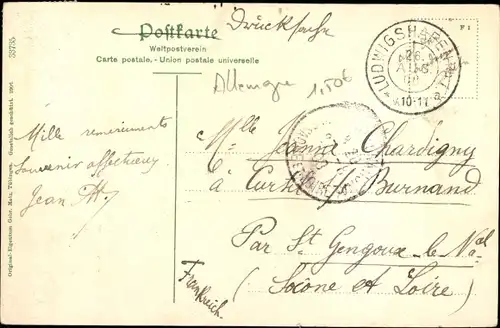 Postkarte
Drucksache
Weltpostverein
Carte postale. - Union postale universelle
F 1
33735
LUDWIGSHAFEN
26
AUG
10-11
Allemagne
Mlle Jeanne Chardigny
à Curtil s/ Burnand
Par St Gengoux-le-Nal
(Saône et Loire)
Frankreich
Mille remerciements
Souvenir affectueux
Jean
Original-Eigentum Gebr. Metz, Tübingen. Gesetzlich geschützt.